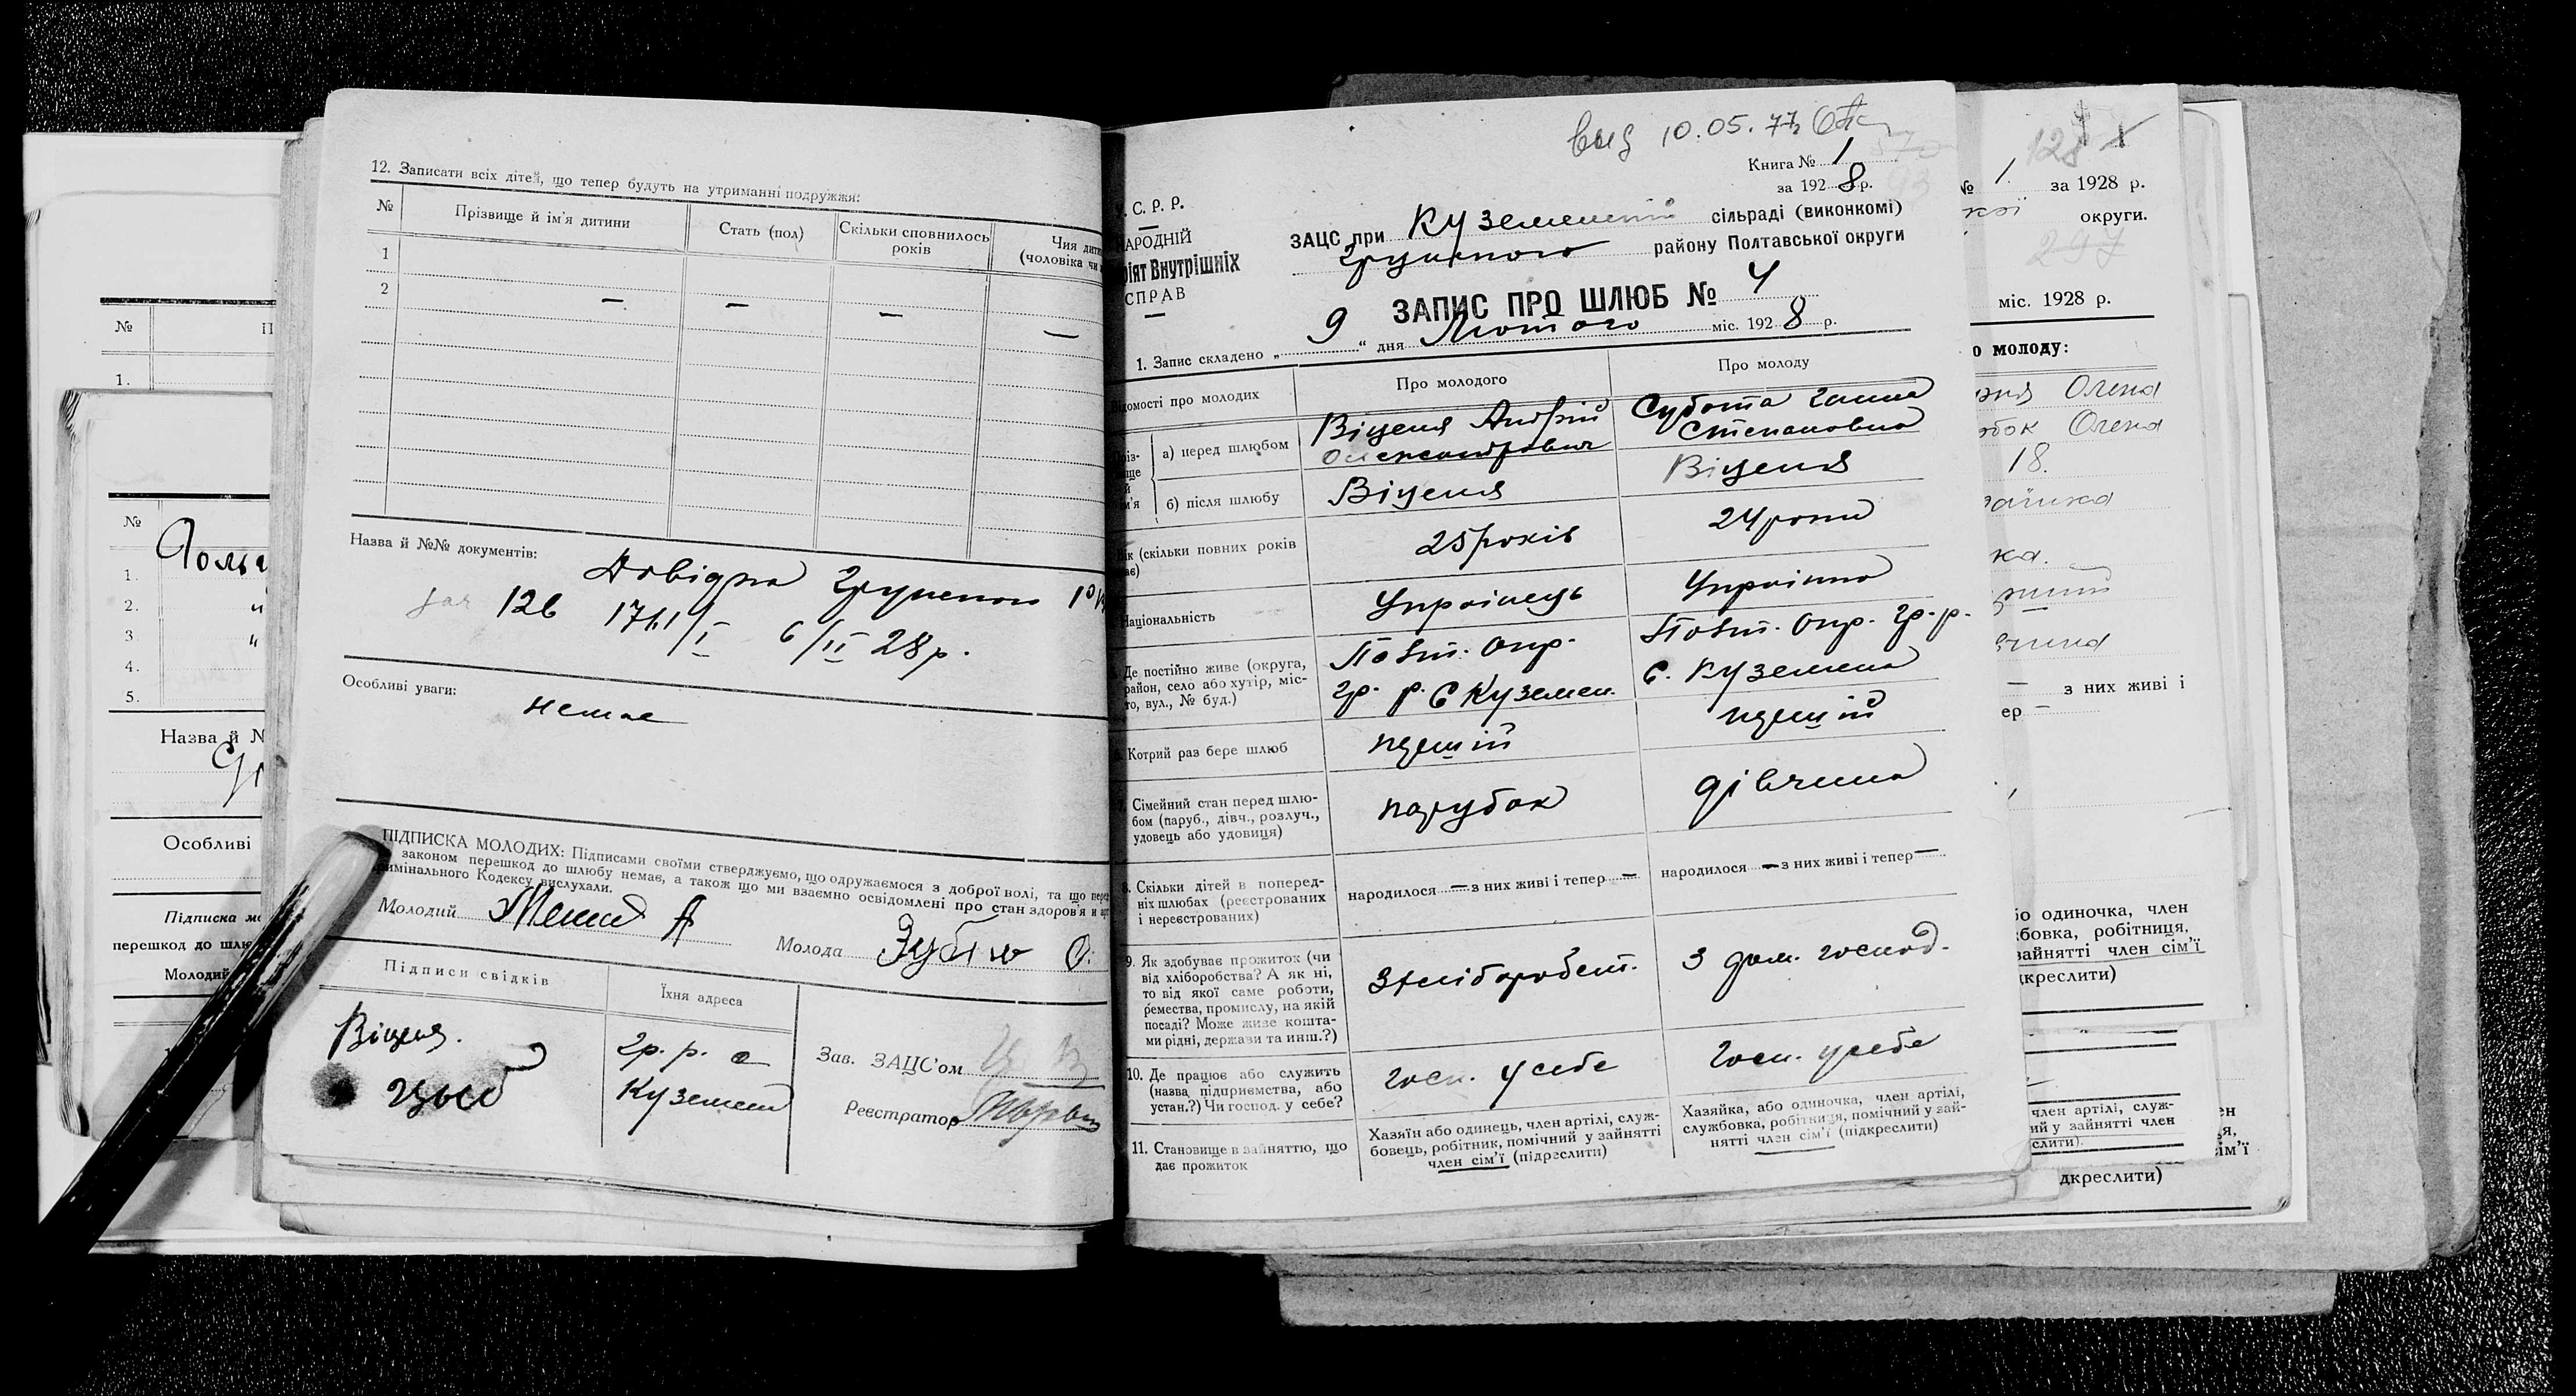 12. Записати всіх дітей, що тепер будуть на утриманні подружжя:
№ Прізвище й ім'я дитини Стать (пол) Скільки сповнилось років Чия дити (чоловіка чи
1
2
— — — —
Назва й №№ документів:
Довідка
126 6/II 28 р.
Особливі уваги:
немає
ПІДПИСКА МОЛОДИХ: Підписами своїми стверджуємо, що одружаємося з доброї волі, та що
законом перешкод до шлюбу немає, а також що ми взаємно освідомлені про стан здоров'я й
римінального Кодексу вислухали.
Молодий А
Молода О.
Підписи свідків Їхня адреса
Віценя.
гр. р. с
Куземен
Зав. ЗАЦС'ом
Реєстратор
№ П
1.
№
1.
2. "
3 "
4.
5.
Назва й №
Особливі
Підписка мо
перешкод до шлю
Молодий
10.05.77
Книга № 1
за 1928 р.
. С. Р. Р.
НАРОДНІЙ
ріят Внутрішніх
СПРАВ
ЗАЦС при Куземенській сільраді (виконкомі)
Грунського району Полтавської округи
ЗАПИС ПРО ШЛЮБ № 4
1. Запис складено „ 9 “ дня Лютого міс. 1928 р.
домості про молодих
Про молодого
Про молоду
різ-
ще
й
м'я
а) перед шлюбом
Віценя Андрій
Олександрович
Субота Ганна
Степановна
б) після шлюбу
Віценя
Віценя
ік (скільки повних років
ає)
25 років
24 роки
Національність
Українець
Українка
Де постійно живе (округа,
район, село або хутір, міс-
то, вул., № буд.)
Полт. Окр.
гр. р. С Куземен.
Полт. Окр. Гр. р.
с. Куземена
Котрий раз бере шлюб
перший
перший
Сімейний стан перед шлю-
бом (паруб., дівч., розлуч.,
удовець або удовиця)
парубок
дівчина
8. Скільки дітей в поперед-
ніх шлюбах (реєстрованих
і нереєстрованих)
народилося — з них живі і тепер —
народилося — з них живі і тепер —
9. Як здобуває прожиток (чи
від хліборобства? А як ні,
то від якої саме роботи,
ремества, промислу, на якій
посаді? Може живе кошта-
ми рідні, держави та инш.?)
З хліборобст.
З дом. господ.
10. Де працює або служить
(назва підприємства, або
устан.?) Чи господ. у себе?
Госп. у себе
Госп. у себе
11. Становище в зайняттю, що
дає прожиток
Хазяїн або одинець, член артілі, служ-
бовець, робітник, помічний у зайнятті
член сім'ї (підреслити)
Хазяйка, або одиночка, член артілі,
службовка, робітниця, помічний у зай-
нятті член сім'ї (підкреслити)
128
№ 1. за 1928 р.
округи.
297
міс. 1928 р.
о молоду:
Олена
Олена
18.
ка.
— з них живі і
ер —
бо одиночка, член
бовка, робітниця,
зайнятті член сім'ї
дкреслити)
член артілі, служ-
ий у зайнятті член
слити).
ен
ця,
сім'ї
дкреслити)